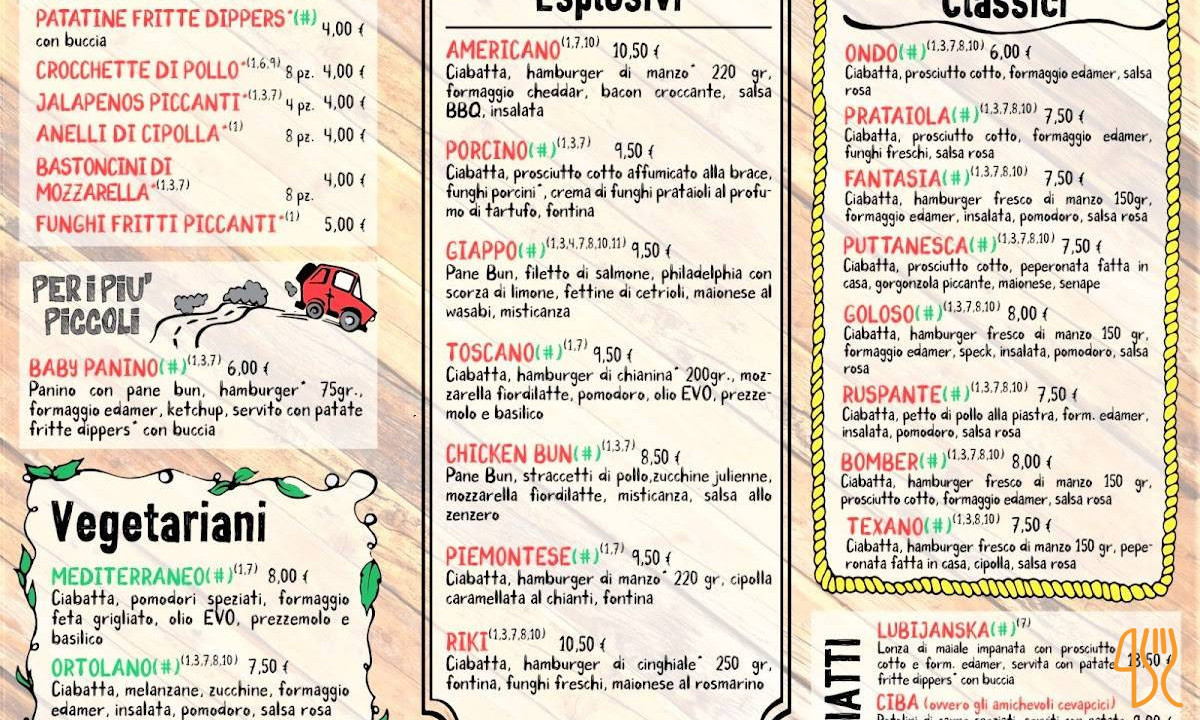 PATATINE FRITTE DIPPERS*(#) 4,00 €
con buccia
CROCCHETTE DI POLLO*(1,6,9) 8 pz. 4,00 €
JALAPENOS PICCANTI*(1,3,7) 4 pz. 4,00 €
ANELLI DI CIPOLLA*(1) 8 pz. 4,00 €
BASTONCINI DI
MOZZARELLA*(1,3,7) 8 pz. 4,00 €
FUNGHI FRITTI PICCANTI*(1) 5,00 €
PER I PIU'
PICCOLI
BABY PANINO(#)(1,3,7) 6,00 €
Panino con pane bun, hamburger* 75gr.,
formaggio edamer, ketchup, servito con patate
fritte dippers* con buccia
Vegetariani
MEDITERRANEO(#)(1,7) 8,00 €
Ciabatta, pomodori speziati, formaggio
feta grigliato, olio EVO, prezzemolo e
basilico
ORTOLANO(#)(1,3,7,8,10) 7,50 €
Ciabatta, melanzane, zucchine, formaggio
edamer, insalata, pomodoro, salsa rosa
Esplosivi
AMERICANO(1,7,10) 10,50 €
Ciabatta, hamburger di manzo* 220 gr,
formaggio cheddar, bacon croccante, salsa
BBQ, insalata
PORCINO(#)(1,3,7) 9,50 €
Ciabatta, prosciutto cotto affumicato alla brace,
funghi porcini*, crema di funghi prataioli al profu-
mo di tartufo, fontina
GIAPPO(#)(1,3,4,7,8,10,11) 9,50 €
Pane Bun, filetto di salmone, philadelphia con
scorza di limone, fettine di cetrioli, maionese al
wasabi, misticanza
TOSCANO(#)(1,7) 9,50 €
Ciabatta, hamburger di chianina* 200gr., moz-
zarella fiordilatte, pomodoro, olio EVO, prezze-
molo e basilico
CHICKEN BUN(#)(1,3,7) 8,50 €
Pane Bun, straccetti di pollo,zucchine julienne,
mozzarella fiordilatte, misticanza, salsa allo
zenzero
PIEMONTESE(#)(1,7) 9,50 €
Ciabatta, hamburger di manzo* 220 gr, cipolla
caramellata al chianti, fontina
RIKI(1,3,7,8,10) 10,50 €
Ciabatta, hamburger di cinghiale* 250 gr,
fontina, funghi freschi, maionese al rosmarino
Classici
ONDO(#)(1,3,7,8,10) 6,00 €
Ciabatta, prosciutto cotto, formaggio edamer, salsa
rosa
PRATAIOLA(#)(1,3,7,8,10) 7,50 €
Ciabatta, prosciutto cotto, formaggio edamer,
funghi freschi, salsa rosa
FANTASIA(#)(1,3,7,8,10) 7,50 €
Ciabatta, hamburger fresco di manzo 150gr,
formaggio edamer, insalata, pomodoro, salsa rosa
PUTTANESCA(#)(1,3,7,8,10) 7,50 €
Ciabatta, prosciutto cotto, peperonata fatta in
casa, gorgonzola piccante, maionese, senape
GOLOSO(#)(1,3,7,8,10) 8,00 €
Ciabatta, hamburger fresco di manzo 150 gr,
formaggio edamer, speck, insalata, pomodoro, salsa
rosa
RUSPANTE(#)(1,3,7,8,10) 7,50 €
Ciabatta, petto di pollo alla piastra, form. edamer,
insalata, pomodoro, salsa rosa
BOMBER(#)(1,3,7,8,10) 8,00 €
Ciabatta, hamburger fresco di manzo 150 gr,
prosciutto cotto, formaggio edamer, salsa rosa
TEXANO(#)(1,3,8,10) 7,50 €
Ciabatta, hamburger fresco di manzo 150 gr, pepe-
ronata fatta in casa, cipolla, salsa rosa
LUBIJANSKA(#)(7)
Lonza di maiale impanata con prosciutto
cotto e form. edamer, servita con patate
fritte dippers* con buccia
CIBA (ovvero gli amichevoli cevapcici)